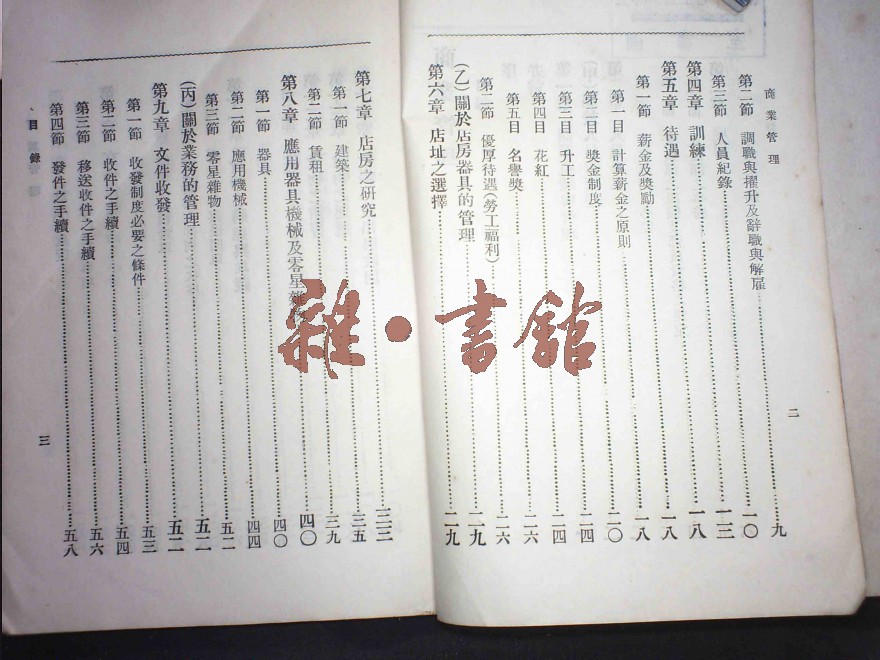 商業管理
二
第二節 調職與擢升及辭職與解雇……九
第三節 人員紀錄……一〇
第四章 訓練……一三
第五章 待遇……一八
第一節 薪金及獎勵……一八
第一目 計算薪金之原則……一八
第二目 獎金制度……二〇
第三目 升工……二四
第四目 花紅……二四
第五目 名譽獎……二六
第二節 優厚待遇(勞工福利)……二六
(乙)關於店房器具的管理……二九
第六章 店址之選擇……二九
第七章 店房之研究……三三
第一節 建築……三五
第二節 賃租……三九
第八章 應用器具機械及零星雜……四〇
第一節 器具……四〇
第二節 應用機械……四四
第三節 零星雜物……五二
(丙)關於業務的管理……五二
第九章 文件收發……五二
第一節 收發制度必要之條件……五三
第二節 收件之手續……五四
第三節 移送收件之手續……五六
第四節 發件之手續……五八
目錄
三
雜·書館